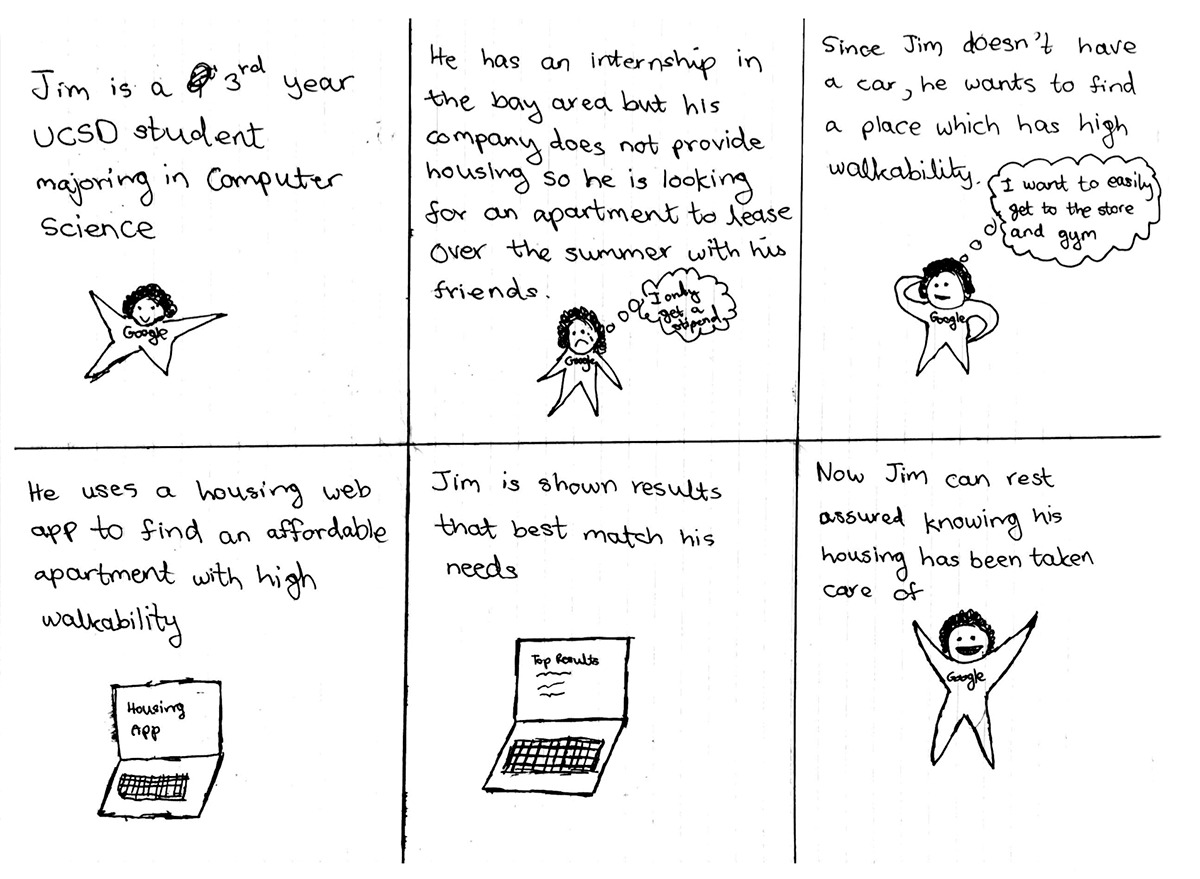 Jim is a 3rd year
UCSD student
majoring in Computer
Science
Google
He has an internship in
the bay area but his
company does not provide
housing so he is looking
for an apartment to lease
over the summer with his
friends.
I only
get a
stipend
Google
Since Jim doesn't have
a car, he wants to find
a place which has high
walkability.
I want to easily
get to the store
and gym
Google
He uses a housing web
app to find an affordable
apartment with high
walkability
Housing
App
Jim is shown results
that best match his
needs
Top Results
Now Jim can rest
assured knowing his
housing has been taken
care of
Google